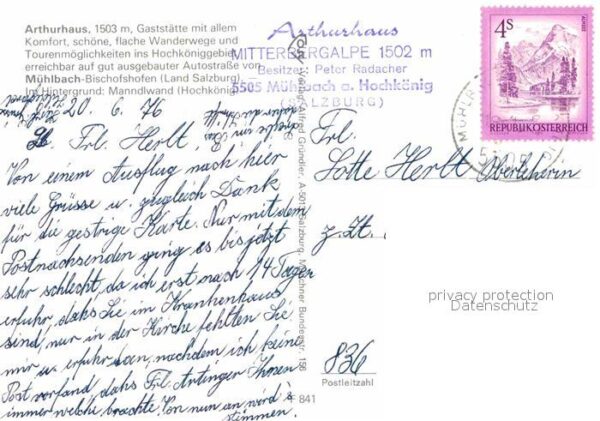 Arthurhaus, 1503 m, Gaststätte mit allem
Komfort, schöne, flache Wanderwege und
Tourenmöglichkeiten ins Hochköniggebiet,
erreichbar auf gut ausgebauter Autostraße von
Mühlbach-Bischofshofen (Land Salzburg).
Im Hintergrund: Manndlwand (Hochkönig)
Arthurhaus
MITTERBERGALPE 1502 m
Besitzer: Peter Radacher
5505 Mühlbach a. Hochkönig
(SALZBURG)
4S
ALMSEE
REPUBLIK ÖSTERREICH
20. 6. 76
Lb. Frl. Herlt,
Von einem Ausflug nach hier
viele Grüsse u. zugleich Dank
für die gestrige Karte. Nur mit dem
Postnachsenden ging es bis jetzt
sehr schlecht, da ich erst nach 14 Tagen
erfuhr, dahs Sie im Krankenhaus
sind, nur in der Kirche fehlten Sie
mir u. erfuhr dann, nachdem ich keine
Post vorfand, dahs Frl. Artinger Ihnen
immer welche brachte. Von nun an wird's
stimmen.
Frl.
Lotte Herlt Oberlehrerin
z. Zt.
836
Postleitzahl
F 841
Verlag Alfred Gründler, A 5013 Salzburg, Münchner Bundesstr. 156
privacy protection
Datenschutz